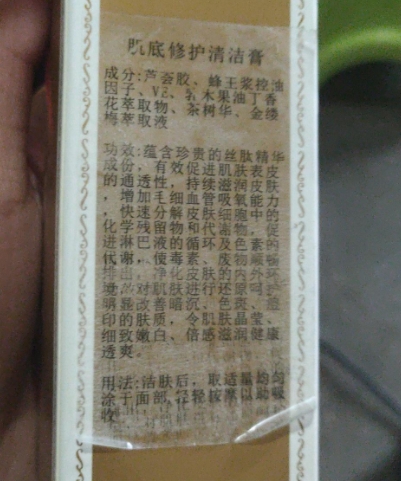 肌底修护清洁膏
成分:芦荟胶、蜂王浆控油
因子、V2、乳木果油丁香
花萃取物、茶树华、金缕
梅萃取液
功效:蕴含珍贵的丝肽精华
成份，有效促进肌肤表皮
的通透性，持续滋润皮肤
，增加毛细血管吸氧能力
，快速分解皮肤细胞中的
化学残留物和代谢物，促
进淋巴液的循环及色素的
代谢，使毒素、废物顺畅
排出，净化皮肤的内外环
境，对肌肤进行还原呵护
明显改善暗沉、色斑、痘
印的肤质，令肌肤晶莹、
细致嫩白、倍感滋润健康
透爽。
用法:洁肤后，取适量均匀
涂于面部,轻轻按摩以助吸
收